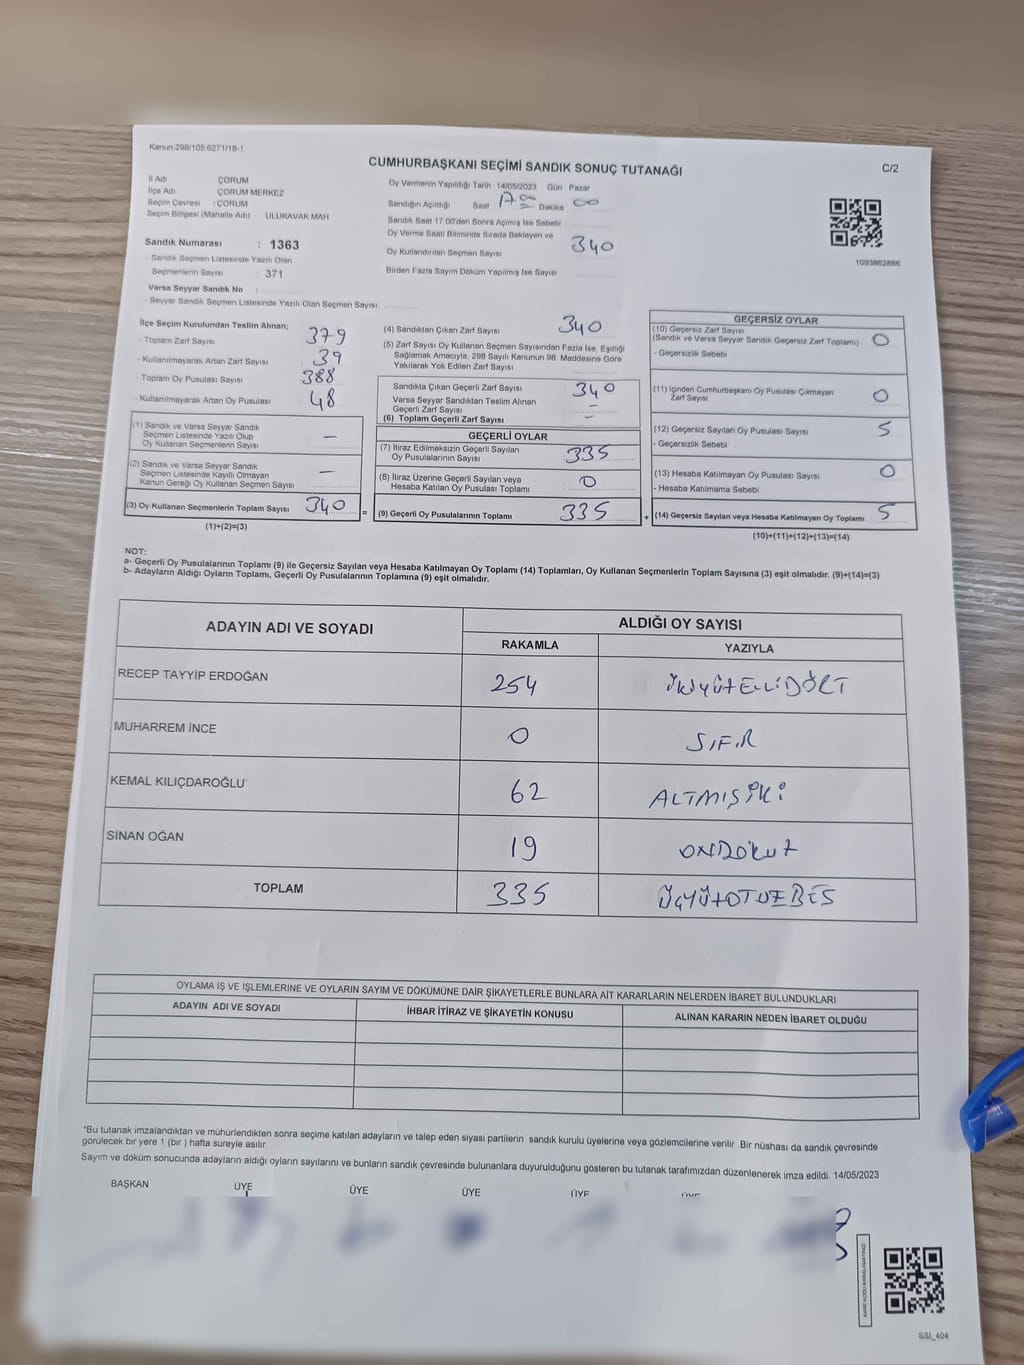 Kanun 298/105,6271/18-1
CUMHURBAŞKANI SEÇİMİ SANDIK SONUÇ TUTANAĞI
C/2
İl Adı ÇORUM
İlçe Adı ÇORUM MERKEZ
Seçim Çevresi : ÇORUM
Seçim Bölgesi (Mahalle Adı) ULUKAVAK MAH
Sandık Numarası : 1363
- Sandık Seçmen Listesinde Yazılı Olan
Seçmenlerin Sayısı : 371
Varsa Seyyar Sandık No :
- Seyyar Sandık Seçmen Listesinde Yazılı Olan Seçmen Sayısı
Oy Vermenin Yapıldığı Tarih 14/05/2023 Gün Pazar
Sandığın Açıldığı Saat 17 00 Dakika 00
Sandık Saat 17.00'den Sonra Açılmış İse Sebebi
Oy Verme Saati Bitiminde Sırada Bekleyen ve
Oy Kullandırılan Seçmen Sayısı 340
Birden Fazla Sayım Döküm Yapılmış İse Sayısı
1093862886
İlçe Seçim Kurulundan Teslim Alınan;
- Toplam Zarf Sayısı 379
- Kullanılmayarak Artan Zarf Sayısı 39
- Toplam Oy Pusulası Sayısı 388
- Kullanılmayarak Artan Oy Pusulası 48
(1) Sandık ve Varsa Seyyar Sandık
Seçmen Listesinde Yazılı Olup
Oy Kullanan Seçmenlerin Sayısı —
(2) Sandık ve Varsa Seyyar Sandık
Seçmen Listesinde Kayıtlı Olmayan
Kanun Gereği Oy Kullanan Seçmen Sayısı —
(3) Oy Kullanan Seçmenlerin Toplam Sayısı 340
(1)+(2)=(3)
=
(4) Sandıktan Çıkan Zarf Sayısı 340
(5) Zarf Sayısı Oy Kullanan Seçmen Sayısından Fazla İse, Eşitliği
Sağlamak Amacıyla, 298 Sayılı Kanunun 98. Maddesine Göre
Yakılarak Yok Edilen Zarf Sayısı
Sandıkta Çıkan Geçerli Zarf Sayısı 340
Varsa Seyyar Sandıktan Teslim Alınan
Geçerli Zarf Sayısı –
(6) Toplam Geçerli Zarf Sayısı –
GEÇERLİ OYLAR
(7) İtiraz Edilmeksizin Geçerli Sayılan
Oy Pusulalarının Sayısı 335
(8) İtiraz Üzerine Geçerli Sayılan veya
Hesaba Katılan Oy Pusulası Toplamı 0
(9) Geçerli Oy Pusulalarının Toplamı 335
+
GEÇERSİZ OYLAR
(10) Geçersiz Zarf Sayısı
(Sandık ve Varsa Seyyar Sandık Geçersiz Zarf Toplamı) 0
- Geçersizlik Sebebi
(11) İçinden Cumhurbaşkanı Oy Pusulası Çıkmayan
Zarf Sayısı 0
(12) Geçersiz Sayılan Oy Pusulası Sayısı 5
- Geçersizlik Sebebi
(13) Hesaba Katılmayan Oy Pusulası Sayısı 0
- Hesaba Katılmama Sebebi
(14) Geçersiz Sayılan veya Hesaba Katılmayan Oy Toplamı 5
(10)+(11)+(12)+(13)=(14)
NOT:
a- Geçerli Oy Pusulalarının Toplamı (9) ile Geçersiz Sayılan veya Hesaba Katılmayan Oy Toplamı (14) Toplamları, Oy Kullanan Seçmenlerin Toplam Sayısına (3) eşit olmalıdır. (9)+(14)=(3)
b- Adayların Aldığı Oyların Toplamı, Geçerli Oy Pusulalarının Toplamına (9) eşit olmalıdır.
ADAYIN ADI VE SOYADI
ALDIĞI OY SAYISI
RAKAMLA YAZIYLA
RECEP TAYYİP ERDOĞAN 254 İKİYÜZELLİDÖRT
MUHARREM İNCE 0 SIFIR
KEMAL KILIÇDAROĞLU 62 ALTMIŞİKİ
SİNAN OĞAN 19 ONDOKUZ
TOPLAM 335 ÜÇYÜZOTUZBEŞ
OYLAMA İŞ VE İŞLEMLERİNE VE OYLARIN SAYIM VE DÖKÜMÜNE DAİR ŞİKAYETLERLE BUNLARA AİT KARARLARIN NELERDEN İBARET BULUNDUKLARI
ADAYIN ADI VE SOYADI İHBAR İTİRAZ VE ŞİKAYETİN KONUSU ALINAN KARARIN NEDEN İBARET OLDUĞU
*Bu tutanak imzalandıktan ve mühürlendikten sonra seçime katılan adayların ve talep eden siyasi partilerin sandık kurulu üyelerine veya gözlemcilerine verilir. Bir nüshası da sandık çevresinde
görülecek bir yere 1 (bir) hafta süreyle asılır.
Sayım ve döküm sonucunda adayların aldığı oyların sayılarını ve bunların sandık çevresinde bulunanlara duyurulduğunu gösteren bu tutanak tarafımızdan düzenlenerek imza edildi. 14/05/2023
BAŞKAN ÜYE ÜYE ÜYE ÜYE ÜYE
SSI_404